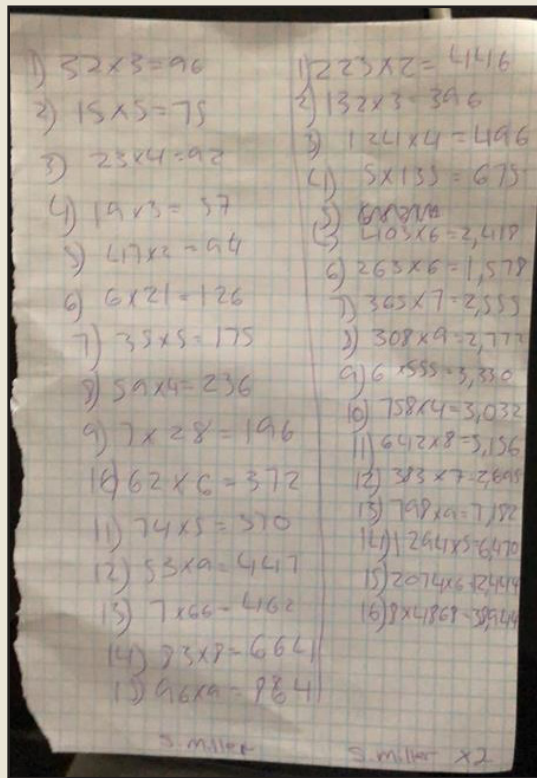 1) 32x3=96
2) 15x5=75
3) 23x4=92
4) 19x3=57
5) 47x2=94
6) 6x21=126
7) 35x5=175
8) 59x4=236
9) 7x28=196
10) 62x6=372
11) 74x5=370
12) 53x9=447
13) 7x66=462
14) 83x8=664
15) 96x9=864
S. Miller
1) 223x2=4446
2) 132x3=396
3) 124x4=496
4) 5x135=675
5)
5) 403x6=2,418
6) 263x6=1,578
7) 365x7=2,555
8) 308x9=2,772
9) 6x555=3,330
10) 758x4=3,032
11) 642x8=5,136
12) 383x7=2,695
13) 798x9=7,182
14) 1294x5=6,470
15) 2074x6=12,444
16) 8x4868=38,944
S. Miller x2